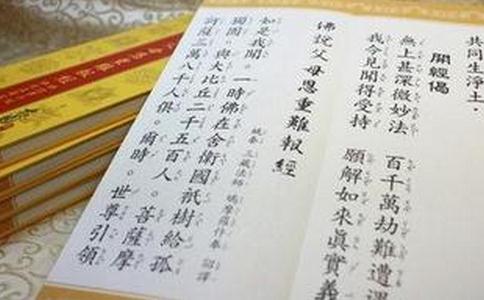 共同生淨土．
開經偈
無上甚深微妙法　百千萬劫難遭遇
我今見聞得受持　願解如來眞實義
佛說父母恩重難報經
姚秦三藏法師鳩摩羅什奉　詔譯
如是我聞。一時佛在舍衛國祇樹給孤
獨園。與大比丘二千五百人。菩薩摩
訶薩三萬八千人俱。爾時。世尊引領